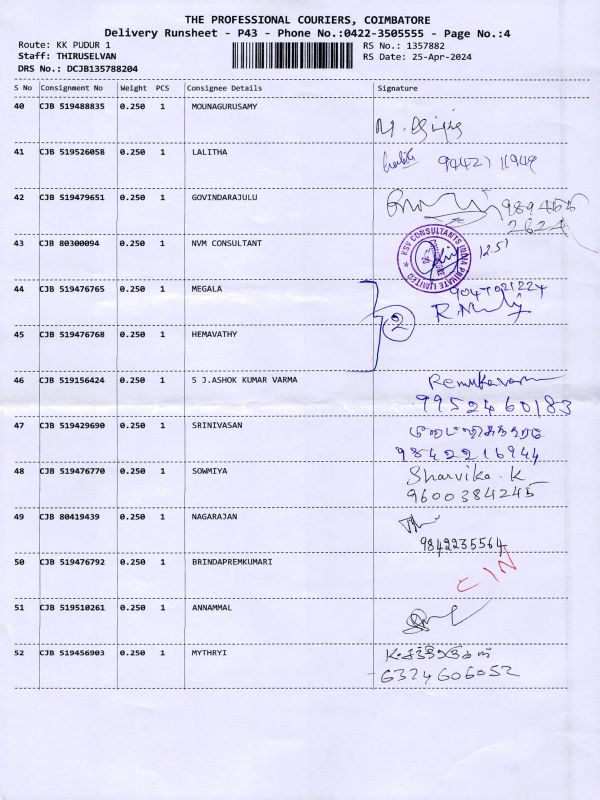 THE PROFESSIONAL COURIERS, COIMBATORE
Delivery Runsheet - P43 - Phone No.:0422-3505555 - Page No.:4
Route: KK PUDUR 1
RS No.: 1357882
Staff: THIRUSELVAN
RS Date: 25-Apr-2024
DRS No.: DCJB135788204
S No Consignment No Weight PCS Consignee Details Signature
40 CJB 519488835 0.250 1 MOUNAGURUSAMY
41 CJB 519526058 0.250 1 LALITHA
42 CJB 519479651 0.250 1 GOVINDARAJULU
2624
43 CJB 80300094 0.250 1 NVM CONSULTANT
KSV CONSULTANTS INDIA PRIVATE LIMITED
12.51
44 CJB 519476765 0.250 1 MEGALA
2
45 CJB 519476768 0.250 1 HEMAVATHY
46 CJB 519156424 0.250 1 5 J.ASHOK KUMAR VARMA
9952460183
47 CJB 519429690 0.250 1 SRINIVASAN
9842216944
48 CJB 519476770 0.250 1 SOWMIYA Sharvika. K
9600384245
49 CJB 80419439 0.250 1 NAGARAJAN
9842235564
50 CJB 519476792 0.250 1 BRINDAPREMKUMARI
CIN
51 CJB 519510261 0.250 1 ANNAMMAL
52 CJB 519456903 0.250 1 MYTHRYI
6374606052